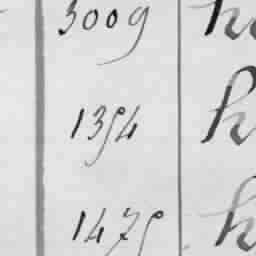 3009 h
1354 h
1475 h